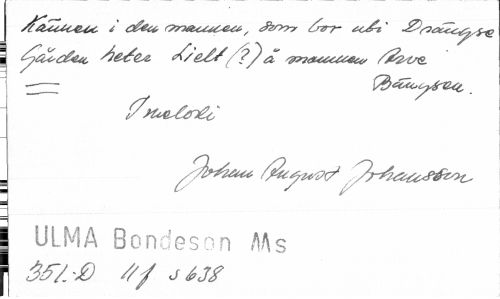 Känner i den mannen, som bor ubi Drängse
Gården heter Lielt (?) å mannen Arve
Bängsen.
I melodi
Johan August Johansson
ULMA Bondeson Ms
351:D II f s 638